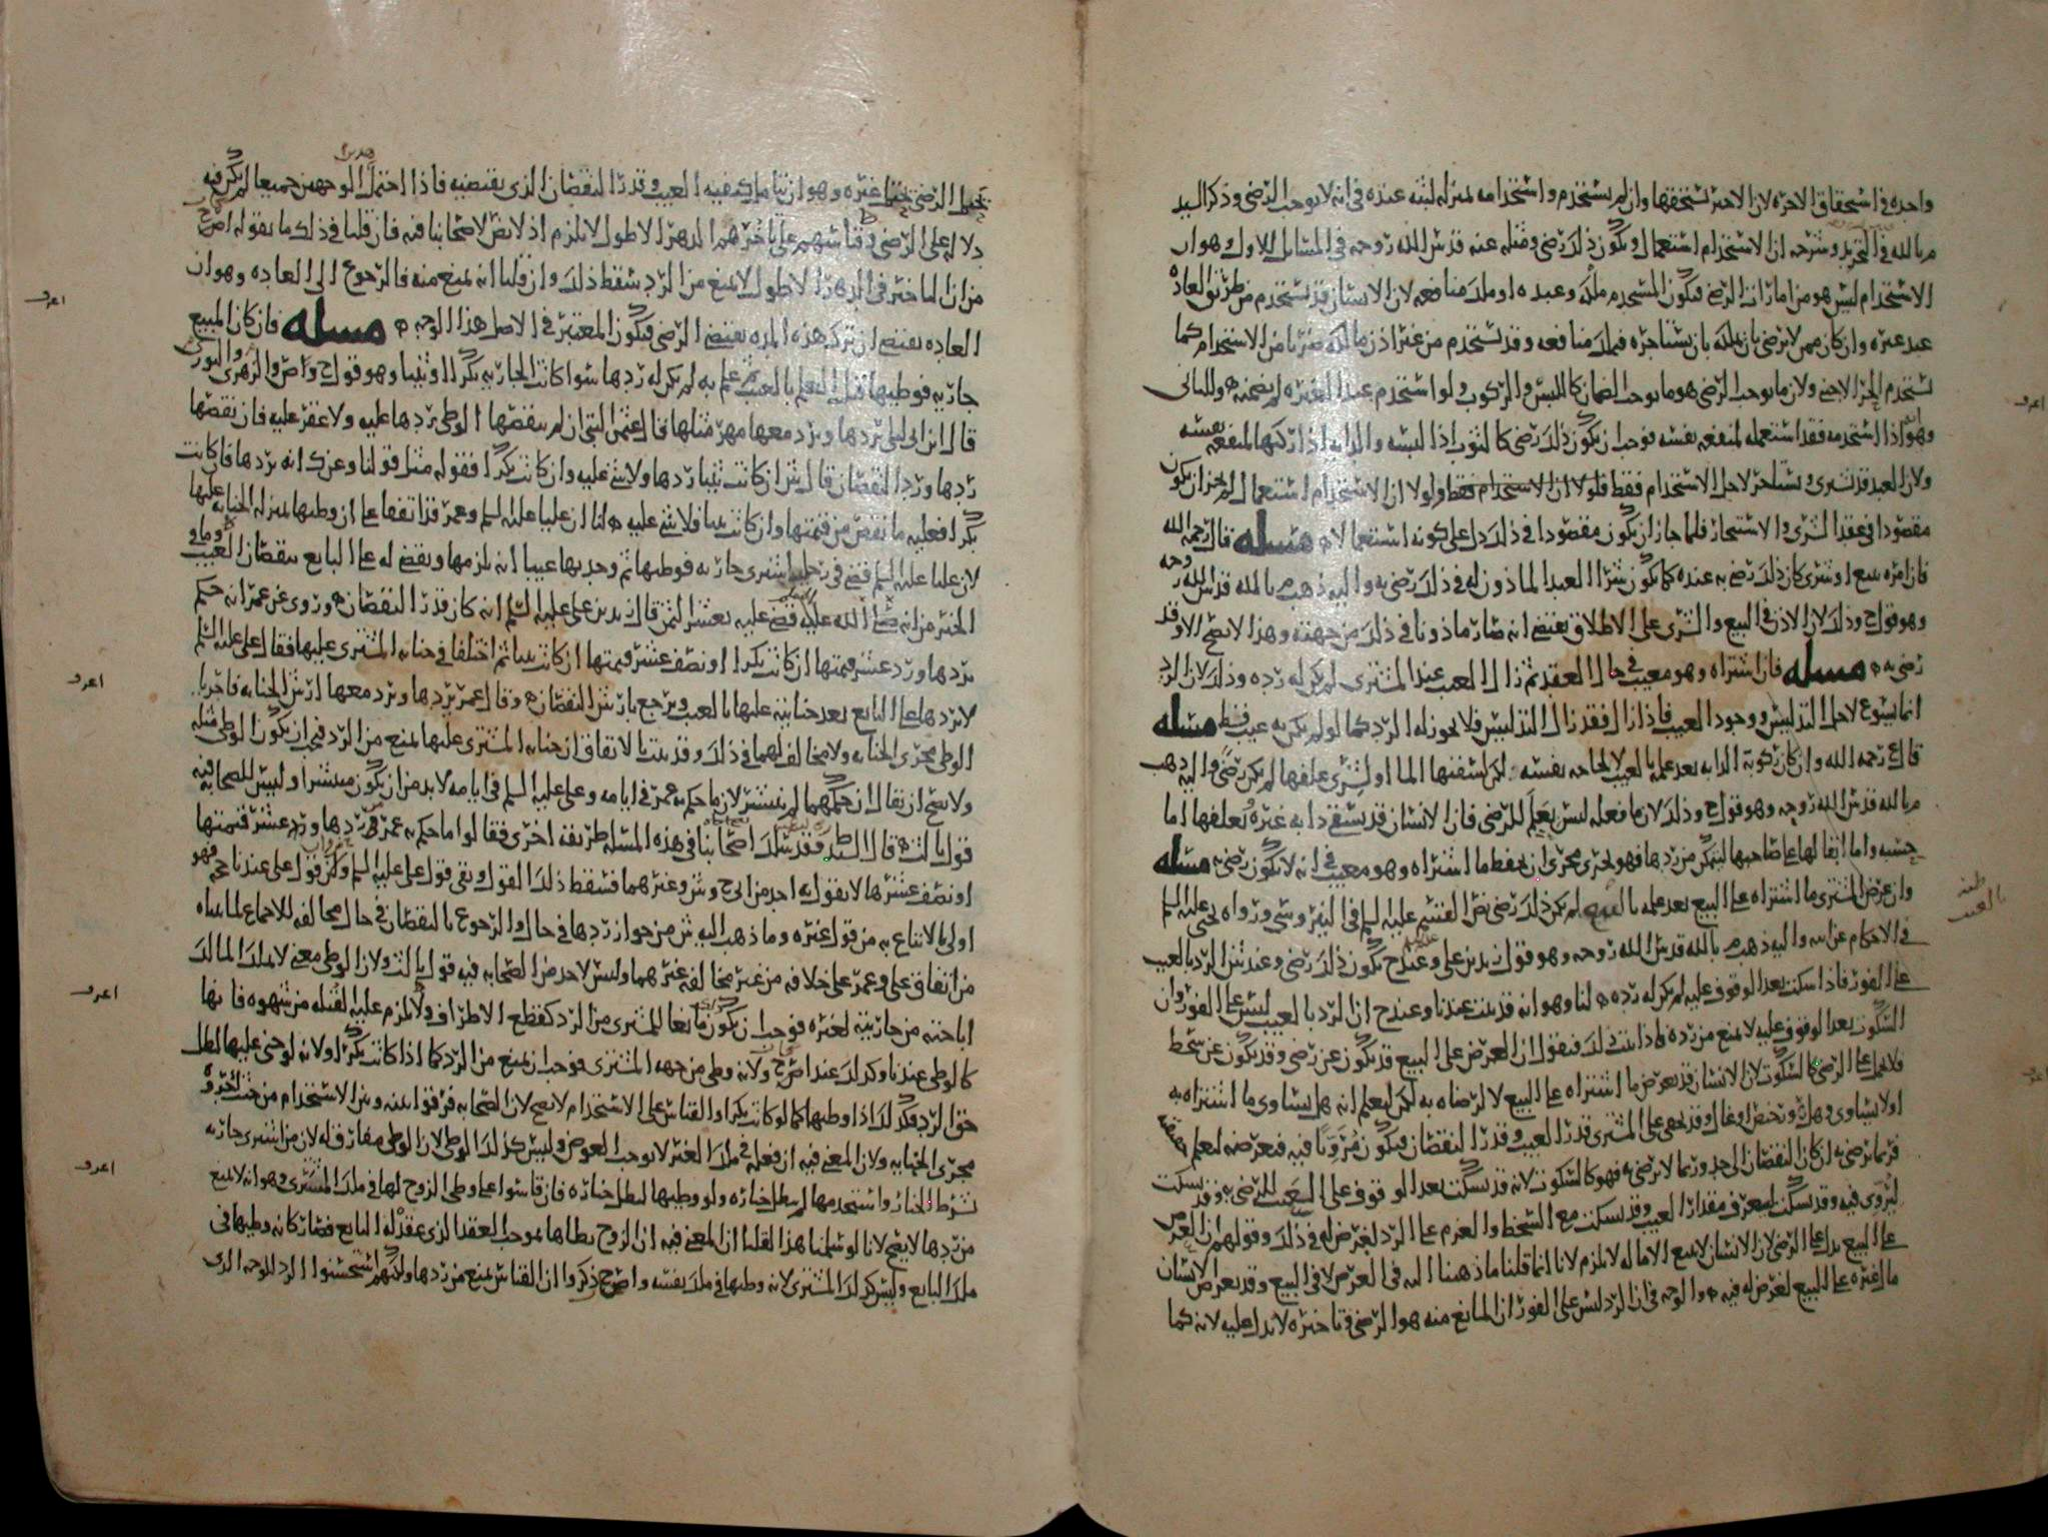 واحده في استحقاق الاجره لان الاجير يستحقها وان لم يستخدم واستخدامه بمنزله لبثه عنده في انه لا يوجب الرضى وذكر السيد
م بالله في التجريد وشرحه ان الاستخدام استعمال ويكون ذلك رضى ومثله عنه قدس الله روحه في المسائل للاول وهو ان
الاستخدام ليس هو من امارات الرضى فيكون المستخدم ملك وعبده او ملك منافعه لان الانسان قد يستخدم من طريق العاده
عبد غيره وان كان ممن لا يرضى بان يملكه بان يستاجره فيملك منافعه وقد يستخدم من غير اذن مالكه ضربا من الاستخدام كما
يستخدم الحر الاجنبي ولان ما يوجب الرضى هو ما يوجب الضمان كاللبس والركوب ولو استخدم عبدا لغيره لم يضمنه وللثاني
وهو اذا استخدمه فقد استعمله لمنفعه نفسه فوجب ان يكون ذلك رضى كالثوب اذا لبسه والدابه اذا ركبها لمنفعه نفسه
ولان العبد قد يشرى ويستاجر لاجل الاستخدام فقط فلولا ان الاستخدام استعمال لم يجز ان يكون
مقصودا في عقد الشرى والاستيجار فلما جاز ان يكون مقصودا في ذلك دل على كونه استعمالا مسله قال رحمه الله
فان امره ببيع او شرى كان ذلك رضى به عنده كما يكون شرا العبد الماذون له في ذلك رضى به واليه ذهب م بالله قدس الله روحه
وهو قول ح وذلك لان الاذن في البيع والشرى على الاطلاق يقتضي انه صار ماذونا في ذلك من جهته وهذا لا يصح الا وقد
رضى به مسله فان اشتراه وهو معيب في حال العقد ثم زال العيب عند المشتري لم يكن له رده وذلك لان الرد
انما يسوغ لاجل التدليس ووجود العيب فاذا زال فقد زال التدليس فلا يجوز له الرد كما لو لم يكن به عيب قط مسله
قال رحمه الله وان كان ركوبه الدابه بعد علمه بالعيب لا لحاجه نفسه لكن لسقيها الما او لشرى علفها لم يكن رضى واليه ذهب
م بالله قدس الله روحه وهو قول ح وذلك لان ما فعله ليس بعلم للرضى فان الانسان قد يسقي دابه غيره ويعلفها اما
حسبه واما ابقا لها على صاحبها ليتمكن من ردها فهو يجري مجرى ان يحفظ ما اشتراه وهو معيب في انه لا يكون رضى به مسله
وان عرض المشتري ما اشتراه على البيع بعد علمه بالعيب لم يكن ذلك رضى نص القسم عليه السلم في النيروسي ورواه يحيى عليه السلم
في الاحكام عن ابيه واليه ذهب م بالله قدس الله روحه وهو قول زيد بن علي وعند ح يكون ذلك رضى وعند ش الرد بالعيب
على الفور فاذا سكت بعد الوقوف عليه لم يكن له رده لنا وهو انه قد ثبت عندنا وعند ح ان الرد بالعيب ليس على الفور وان
السكوت بعد الوقوف عليه لا يمنع من رده فاذا ثبت ذلك فنقول ان العرض على البيع قد يكون عن رضى وقد يكون عن سخط
فلا يدل على الرضى كالسكوت لان الانسان قد يعرض ما اشتراه على البيع لا لرضاه به لكن ليعلم انه هل يساوي ما اشتراه به
او لا يساوي وقد يخفى على المشتري قدر العيب وقدر النقصان فيكون مترويا فيه فيعرضه ليعلم حقيقته
فربما يرضى به ان كان النقصان الى حد وربما لا يرضى به فهو كالسكوت لانه قد يسكت بعد الوقوف على العيب للرضى به وقد يسكت
ليروي فيه وقد يسكت ليعرف مقدار العيب وقد يسكت مع السخط والعزم على الرد لغرض له في ذلك وقولهم ان العرض
على البيع يدل على الرضى لان الانسان لا يبيع الا ماله لا يلزم لانا انما قلنا ما ذهبنا اليه في العرض لا في البيع وقد يعرض الانسان
مال غيره على البيع لغرض له فيه والوجه في ان الرد ليس على الفور ان المانع منه هو الرضى وتاخيره لا يدل عليه لانه كما
يحتمل الرضى يحتمل غيره وهو ان يتامل كيفيه العيب وقدر النقصان الذي يقتضيه فاذا احتمل الوجهين جميعا لم يكن فيه
دلاله على الرضى وقياسهم على تاخيرهم الدهر الاطول لا يلزم اذ لا نص لاصحابنا فيه فان قلنا في ذلك ما يقوله اصح
من ان التاخير في الدهر الاطول لا يمنع من الرد سقط ذلك وان قلنا انه يمنع منه فالرجوع الى العاده وهو ان
العاده يقتضي ان ترك هذه المده يقتضي الرضى فيكون المعتبر في الاصل هذا الوجه مسله فان كان المبيع
جاريه فوطيها قبل العلم بالعيب ثم علم به لم يكن له ردها سوا كانت الجاريه بكرا او ثيبا وهو قول ح واص والزهري والثوري
قال ابن ابي ليلى يردها ويرد معها مهر مثلها قال عثمن البتي ان لم ينقصها الوطى يردها عليه ولا عقر عليه فان نقصها
ردها ورد النقصان قال ش ان كانت ثيبا ردها ولا شي عليه وان كانت بكرا فقوله مثل قولنا وعن ك انه يردها فان كانت
بكرا فعليه ما نقص من قيمتها وان كانت ثيبا فلا شي عليه لنا ان عليا عليه السلم وعمر قد اتفقا على ان وطيها بمنزله الجنايه عليها
لان عليا عليه السلم قضى في رجل اشترى جاريه فوطيها ثم وجد بها عيبا انه يلزمها ويقضى له على البايع بنقصان العيب وفي
الخبر من انه صلى الله عليه قضى عليه بعشر الثمن قال زيد بن علي عليه السلم انه كان قدر النقصان وروي عن عمر انه حكم
بردها ورد عشر قيمتها ان كانت بكرا او نصف عشر قيمتها ان كانت ثيبا ثم اختلفا في جنايه المشتري عليها فقال علي عليه السلم
لا يردها على البايع بعد جنايته عليها بالعيب ويرجع بارش النقصان وقال عمر يردها ويرد معها ارش الجنايه فاجريا
الوطى مجرى الجنايه ولا مخالف لهما في ذلك وقد ثبت بالاتفاق ان جنايه المشتري عليها يمنع من الرد فيجب ان يكون الوطى مثله
ولا يصح ان يقال ان حكمهما لم ينتشر لان ما حكم به عمر في ايامه وعلي عليه السلم في ايامه لا بد من ان يكون منتشرا وليس للصحابه فيه
قول ثالث قال السيد وقد سلك اصحابنا في هذه المسله طريقه اخرى فقالوا ما حكم به عمر في ردها ورد عشر قيمتها
او نصف عشرها لا يقول به احد من اح وش وغيرهما فسقط ذلك القول وبقي قول علي عليه السلم ولان قول علي عندنا حجه فهو
اولى بالاتباع به من قول غيره وما ذهب اليه ش من جواز ردها في حال والرجوع بالنقصان في حال مخالفه للاجماع لما بيناه
من اتفاق علي وعمر على خلافه من غير مخالفه غيرهما وليس لاحد من الصحابه فيه قول ثالث ولان الوطى معنى لا يملك المالك
اباحته من جاريته لغيره فوجب ان يكون مانعا للمشتري من الرد كقطع الاطراف ولا يلزم عليه القبله من شهوه فانها
كالوطى عندنا وكذلك عند اص ح ولانه وطى من جهه المشتري فوجب ان يمنع من الرد كما اذا كانت بكرا ولانه لو جنى عليها لبطل
حق الرد فكذلك اذا وطيها كما لو كانت بكرا والقياس على الاستخدام لا يصح لان الصحابه فرقوا بينه وبين الاستخدام من حيث اجروه
مجرى الجنايه ولان المعنى فيه ان فعله في ملك الغير لا يوجب العوض وليس كذلك الوطى لان الوطى مفارق له لان من اشترى جاريه
بشرط الخيار واستخدمها لم يبطل خياره ولو وطيها لبطل خياره فان قاسوا على وطى الزوج لها في ملك المشتري وهو انه لا يمنع
من ردها لا يصح لانا لو سلمنا هذا لقلنا ان المعنى فيه ان الزوج يطاها بموجب العقد الذي عقد له البايع فصار كانه وطيها في
ملك البايع وليس كذلك المشتري لانه وطيها في ملك نفسه واص ح ذكروا ان القياس يمنع من ردها ولكنهم استحسنوا الرد للوجه الذي